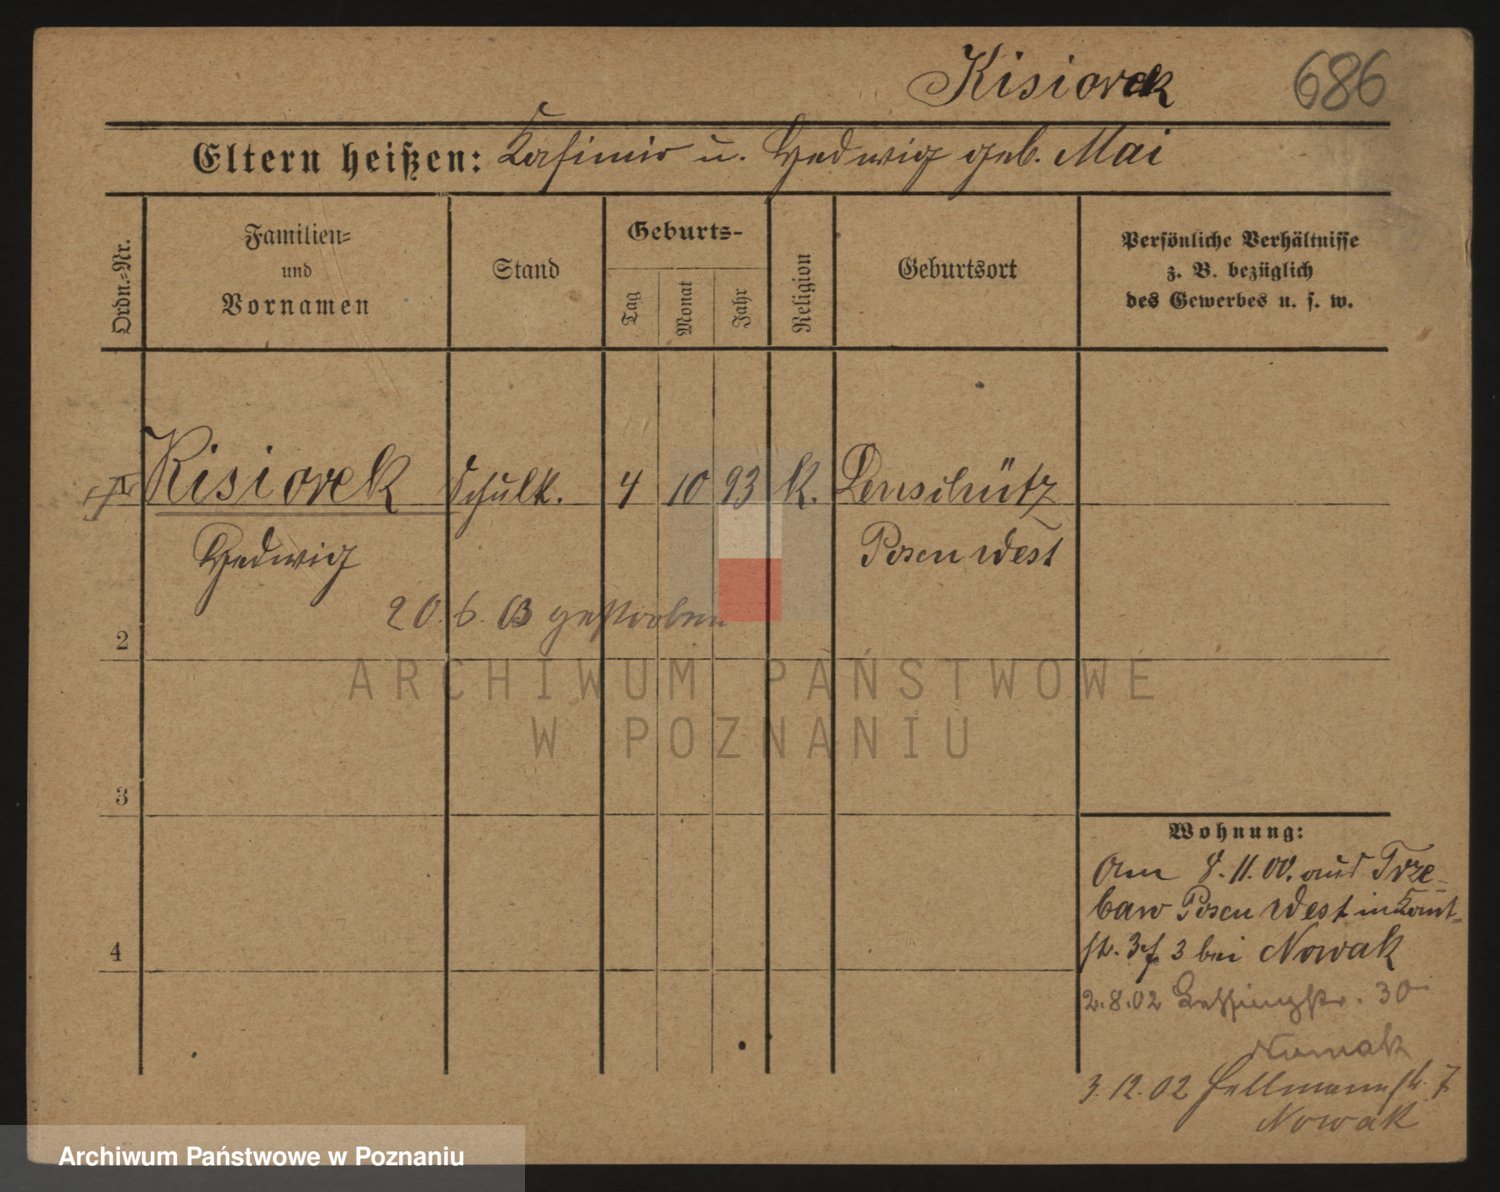 Kisiorek 686
Eltern heißen: Kasimir u. Hedwig geb. Mai
Ordn.-Nr.
Familien-
und
Vornamen
Stand
Geburts-
Tag
Monat
Jahr
Religion
Geburtsort
Persönliche Verhältnisse
z. B. bezüglich
des Gewerbes u. s. w.
Kisiorek Schulk. 4 10 93 K. Lenschütz
Hedwig Posen West
20. 6. 03 gestorben
2
ARCHIWUM PAŃSTWOWE
W POZNANIU
3
4
Wohnung:
Am 8. 11. 00. aus Trze-
baw Posen West in
str. 3 bei Nowak
2. 8. 02 Lessingstr. 30
Nowak
3. 12. 02 Hellmannstr. 7
Nowak
Archiwum Państwowe w Poznaniu